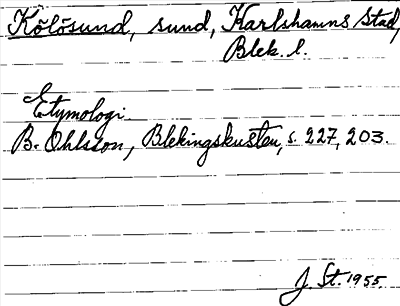 Kölösund, sund, Karlshamns stad,
Blek. l.
Etymologi
B. Ohlsson, Blekingskusten, s. 227, 203.
J. St. 1955.